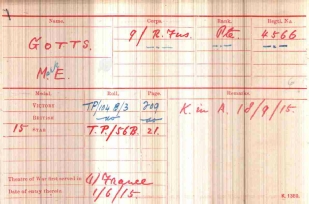 Name. Corps. Rank. Regtl. No.
GOTTS. 9/R. Fus. Pte. 4566
E.
Medal. Roll. Page. Remarks.
VICTORY TP/104 B/3 209 K. in A. 18/9/15.
BRITISH do do
15 STAR T.P./56B. 21.
Theatre of War first served in (1) France
Date of entry therein 1/6/15.